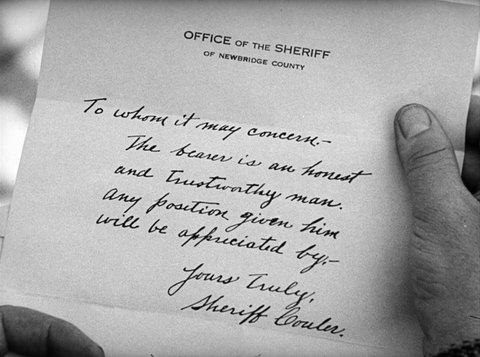 OFFICE OF THE SHERIFF
OF NEWBRIDGE COUNTY
To whom it may concern:-
The bearer is an honest
and trustworthy man.
Any position given him
will be appreciated by:-
Yours Truly,
Sheriff Couler.